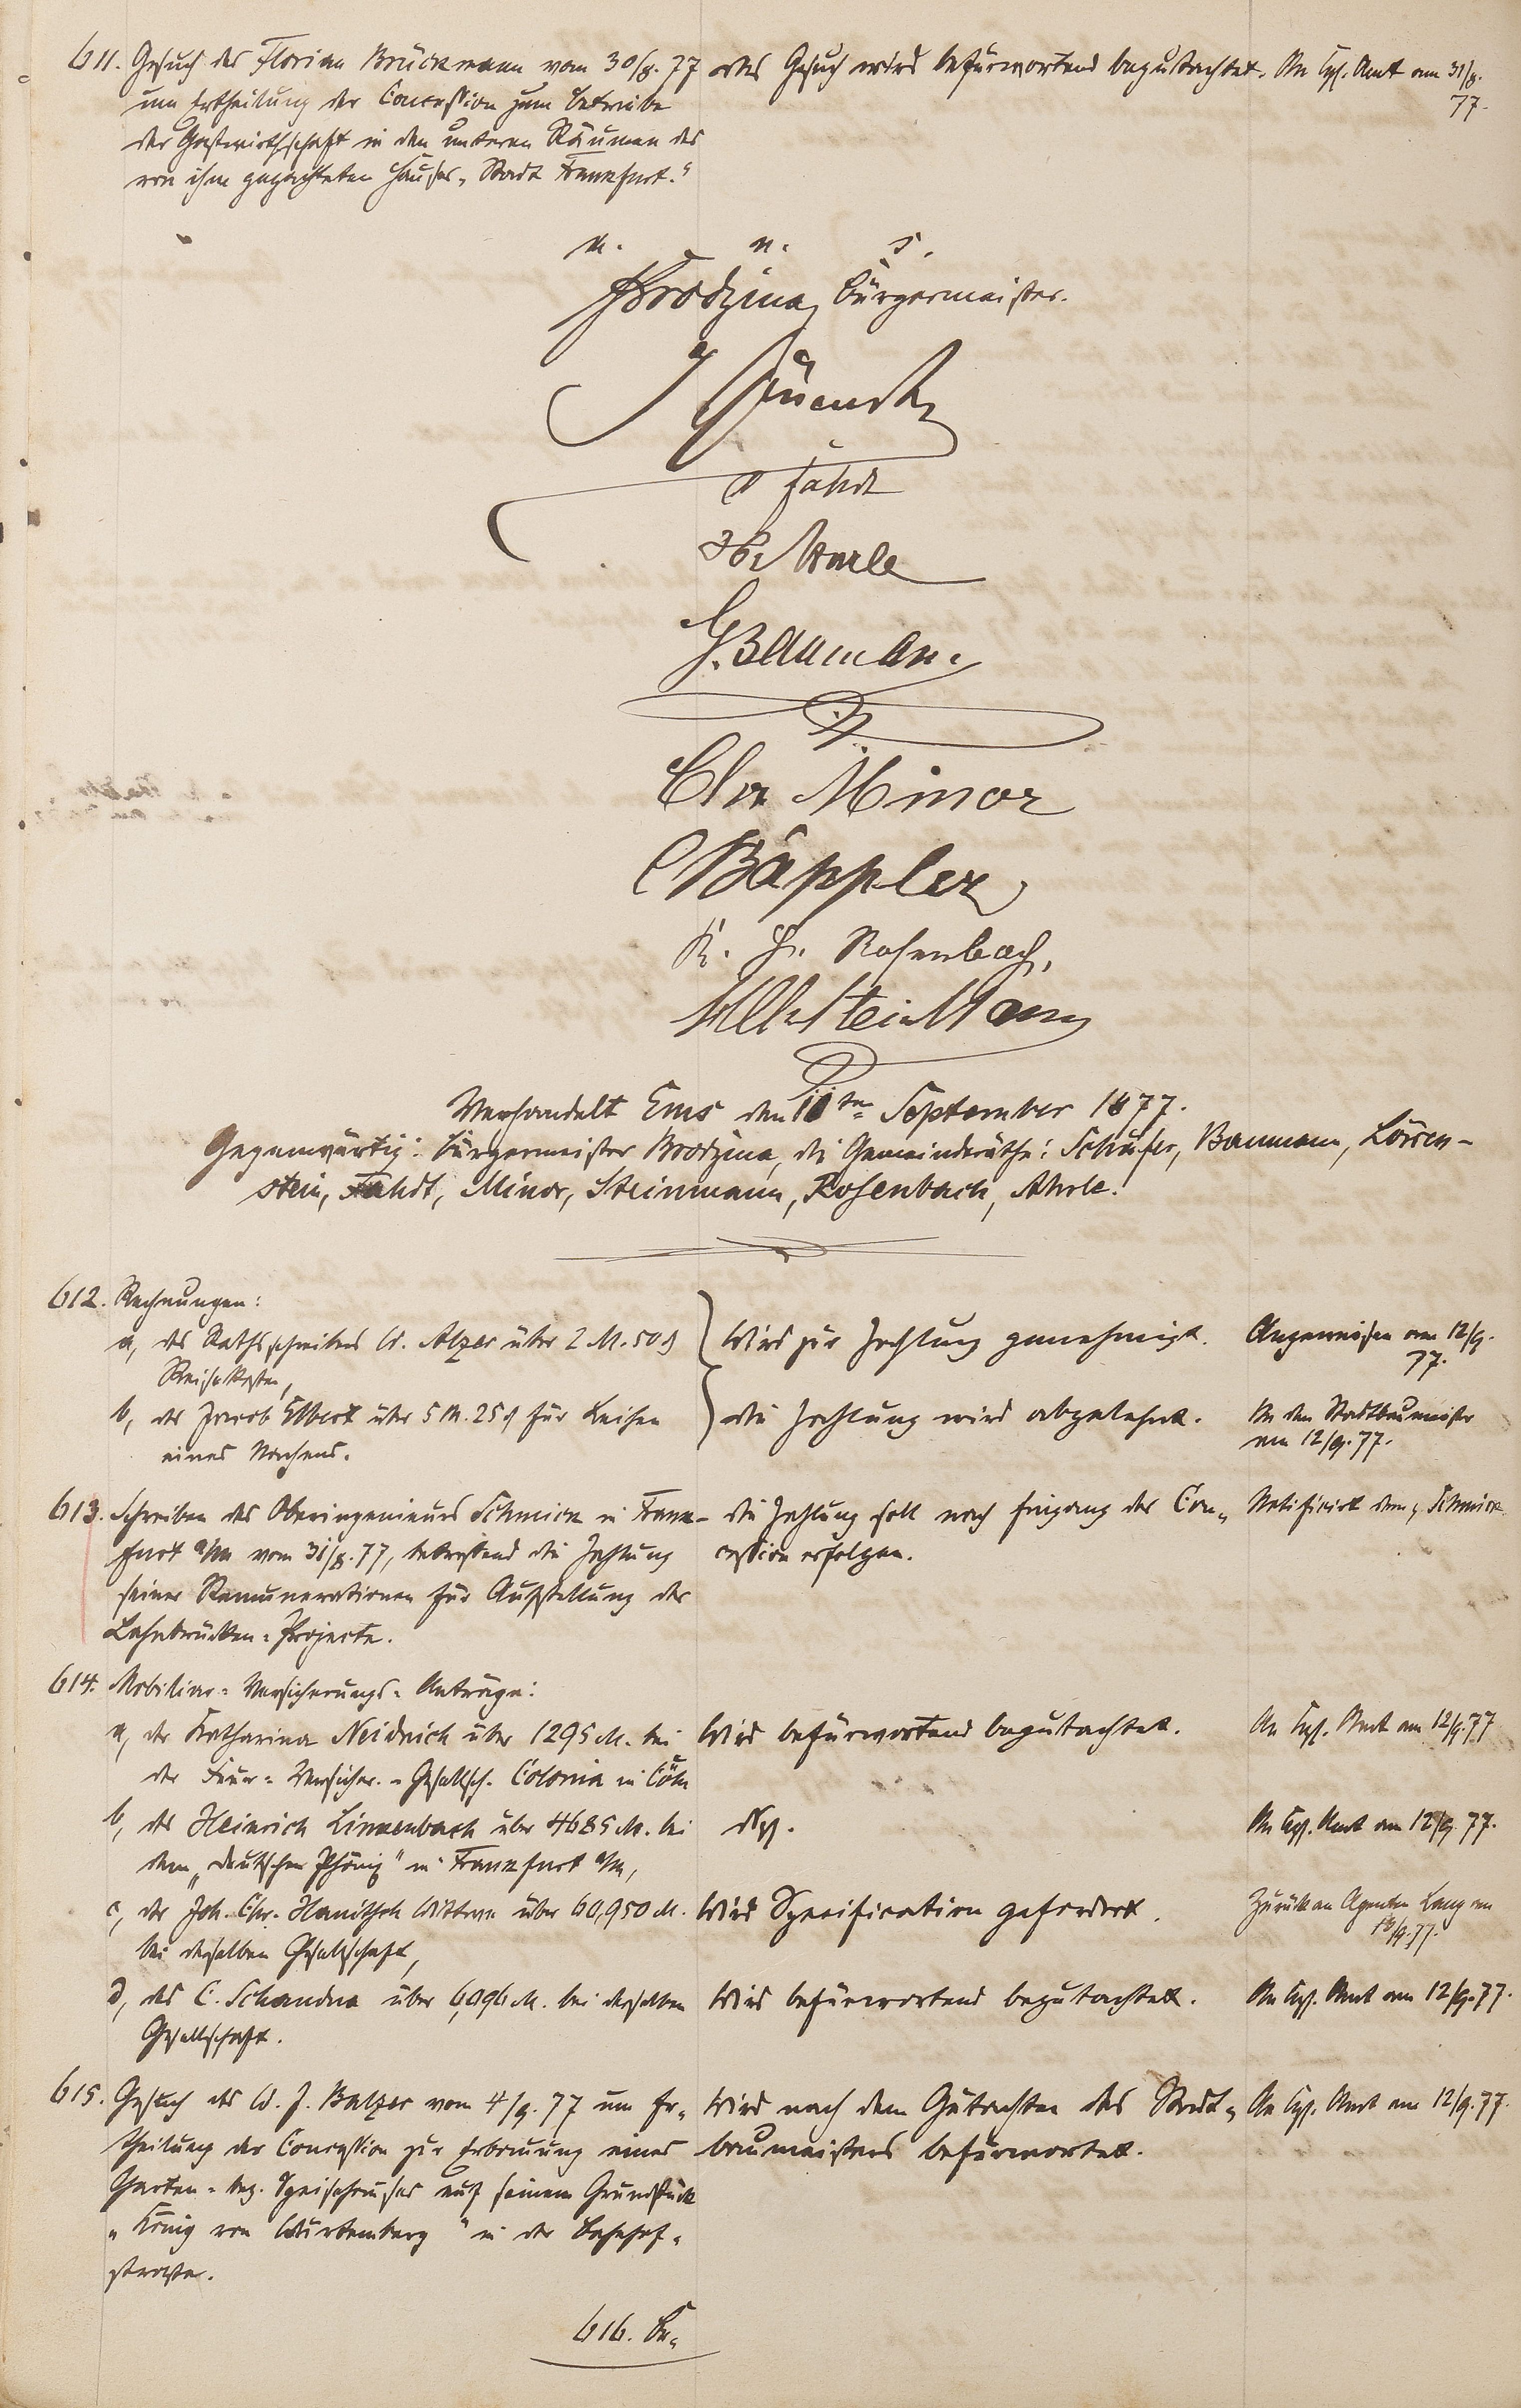 611. Gesuch des Florian Brückmann vom 30/8. 77
um Ertheilung der Concession zum Betriebe
der Gastwirthschaft in den unteren Räumen des
von ihm gepachteten Hauses „Stadt Frankfurt."
Das Gesuch wird befürwortend begutachtet.
An Kgl. Amt am 31/8.
77.
V. n. S.
Brodzina, Bürgermeister.
Fahdt
G. Bauman.
Chr Minor
C Bäppler
K. H. Rosenbach,
Wilh Steinmann
Verhandelt Ems den 11ten September 1877.
Gegenwärtig: Bürgermeister Brodzina, die Gemeinderäthe: Schäfer, Baumann, Löwen-
stein, Fahdt, Minor, Steinmann, Rosenbach, Ahrle.
612. Rechnungen:
a, des Rathsschreibers W. Alzer über 2 M. 50 ₰
Reisekosten,
Wird zur Zahlung genehmigt.
Angewiesen am 12/9.
77.
b, des Jacob Elbert über 5 M. 25 ₰ für Leihen
eines Nachens.
Die Zahlung wird abgelehnt.
An den Stadtbaumeister
am 12/9. 77.
613. Schreiben des Oberingenieurs Schmick in Frank-
furt a/M vom 31/8. 77, betreffend die Zahlung
seiner Remunerationen für Aufstellung der
Lahnbrücken-Projecte.
Die Zahlung soll nach Eingang der Con-
cession erfolgen.
Notificirt dem p. Schmick
614. Mobiliar-Versicherungs-Anträge:
a, der Katharina Neidrich über 1295 M. bei
der Feuer-Versicher.-Gesellsch. Colonia in Cöln
Wird befürwortend begutachtet.
An Kgl. Amt am 12/9. 77
b, des Heinrich Linkenbach über 4685 M. bei
dem „Deutschen Phönix" in Frankfurt a/M,
dsgl.
An Kgl. Amt am 12/9. 77.
c, der Joh. Chr. Hanitsch Wittwe über 60,950 M.
bei derselben Gesellschaft,
Wird Specification gefordert.
Zurück an Agenten Lang am
12/9. 77.
d, des C. Schandua über 6,096 M. bei derselben
Gesellschaft.
Wird befürwortend begutachtet.
An Kgl. Amt am 12/9. 77.
615. Gesuch des W. J. Balzer vom 4/9. 77 um Er-
theilung der Concession zur Erbauung eines
Garten- bez. Speisehauses auf seinem Grundstück
„König von Würtemberg" in der Bahnhof-
straße.
Wird nach dem Gutachten des Stadt-
baumeisters befürwortet.
An Kgl. Amt am 12/9. 77.
616. Be-